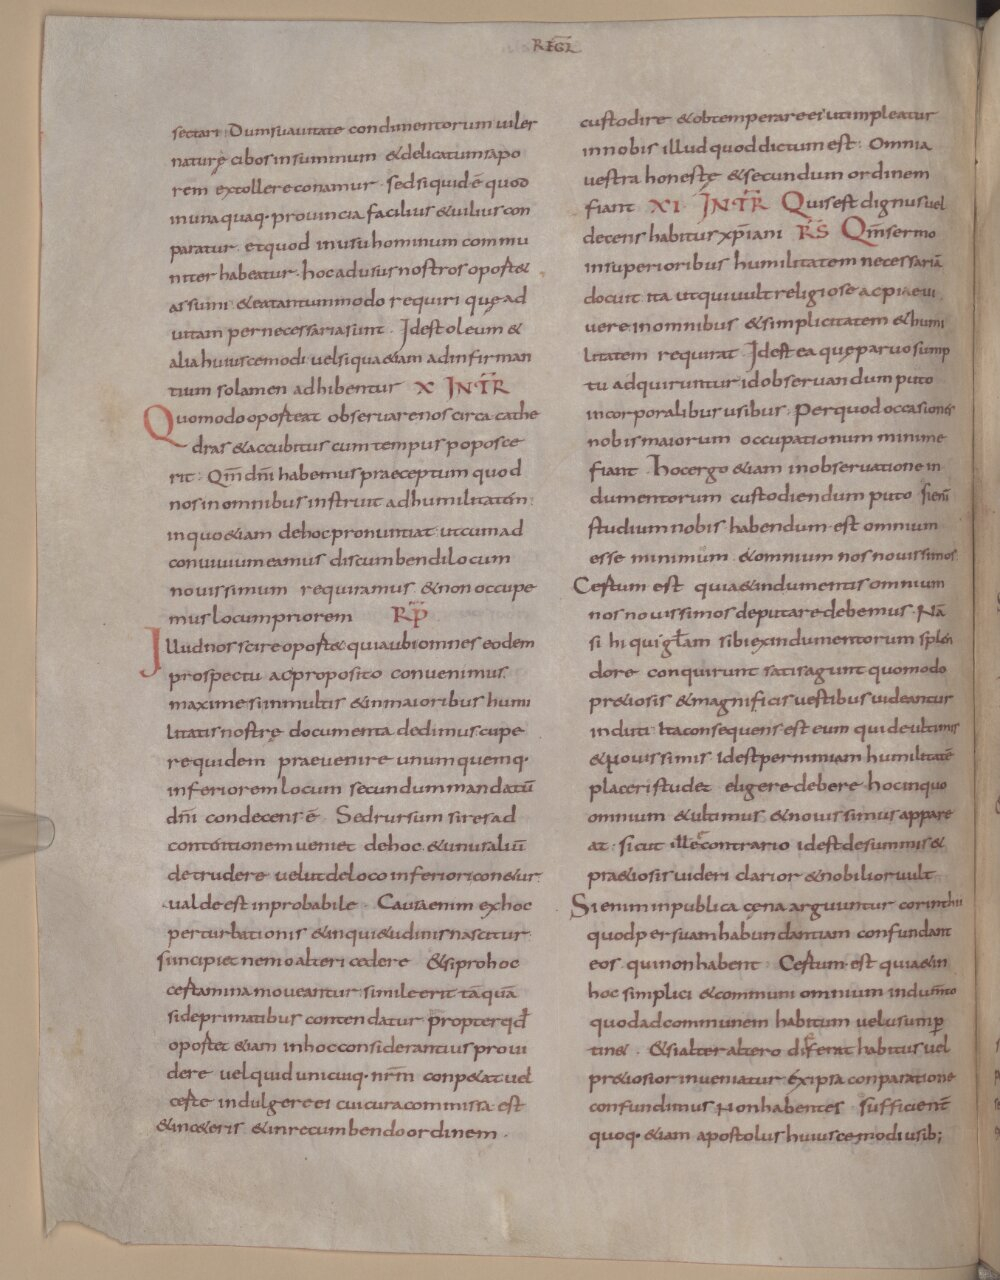 REGL
sectari. Dum suauitate condimentorum uiler
naturę cibos in summum & delicatum sapo
rem extollere conamur. sed siquid ē quod
in unaquaq· prouincia facilius & uilius con
paratur. et quod in usu hominum commu
niter habeatur. hoc ad usus nostros oport&
assumi & ea tantummodo requiri quę ad
uitam per necessaria sunt. Id est oleum &
alia huiuscemodi uel siqua &iam ad infirman
tium solamen adhibentur X INTR̄
Quomodo oporteat obseruare nos circa cathe
dras & accubitus cum tempus poposce
rit. Qm̄ dn̄i habemus praeceptum quod
nos in omnibus instruit ad humilitatem:
in quo &iam de hoc pronuntiat ut cum ad
conuiuium eamus discumbendi locum
nouissimum requiramus & non occupe
mus locum priorem RP̄
Illud nos scire oport& quia ubi omnes eodem
prospectu ac proposito conuenimus.
maxime si in multis & in maioribus humi
litatis nostrę documenta dedimus. cupe
re quidem praeuenire unumquemq·
inferiorem locum secundum mandatū
dn̄i condecens ē Sed rursum si res ad
contētionem ueniet de hoc & unus aliū
detrudere uelut de loco inferiori con&ur
ualde est inprobabile. Causa enim ex hoc
perturbationis & inqui&udinis nascitur.
si incipiet nemo alteri cedere & si pro hoc
certamina moueantur. simile erit tāquā
si de primatibus contendatur propter qđ
oportet &iam in hoc considerantius proui
dere uel quid unicuiq· nrm̄ conpetat uel
certe indulgere ei cui cura commissa est
& in c&eris & in recumbendo ordinem.
custodire & obtemperare ei ut impleatur
in nobis illud quod dictum est. Omnia
uestra honestę & secundum ordinem
fiant XI INTR̄ Quis est dignus uel
decens habitus xp̄iani RS̄ Qm̄ sermo
in superioribus humilitatem necessariā
docuit ita ut qui uult religiose ac pia e ui
uere in omnibus & simplicitatem & humi
litatem requirat. Id est ea quę paruo sump
tu adquiruntur id obseruandum puto
in corporalibus usibus. Per quod occasiones
nobis maiorum occupationum minime
fiant. Hoc ergo &iam in obseruatione in
dumentorum custodiendum puto si enī
studium nobis habendum est omnium
esse minimum & omnium nos nouissimos
Certum est quia & indumentis omnium
nos nouissimos deputare debemus. Nā
si hi qui gl̄am sibi ex indumentorum splen
dore conquirunt satis agunt quomodo
pr&iosis & magnificis uestibus uideantur
induti. Ita consequens est eum qui de ultimis
& nouissimis id est per nimiam humilitatē
placeri studet eligere debere hoc in quo
omnium & ultimus & nouissimus appare
at. sicut ille e contrario id est de summis &
pra&iosis uideri clarior & nobilior uult
Si enim in publica cęna arguuntur corinthii
quod per suam habundantiam confundant
eos qui non habent. Certum est quia & in
hoc simplici & communi omnium indumēto
quod ad communem habitum uel usum p̄
tin&. & si alter altero diferat habitus uel
pr&iosior inueniatur. ex ipsa conparatione
confundimus non habentes sufficient̄
quoq· &iam apostolus huiuscemodi usib;